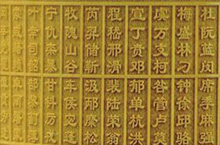 杜阮蓝闵
梅盛林刁
虞万支柯
宣丁贲邓
程嵇邢滑
芮羿储靳
牧隗山谷
宁仇栾暴
席季麻强
钟徐邱骆
昝管卢莫
郁单杭洪
裴陆荣翁
汲邴糜松
车侯宓蓬
甘钭厉戎